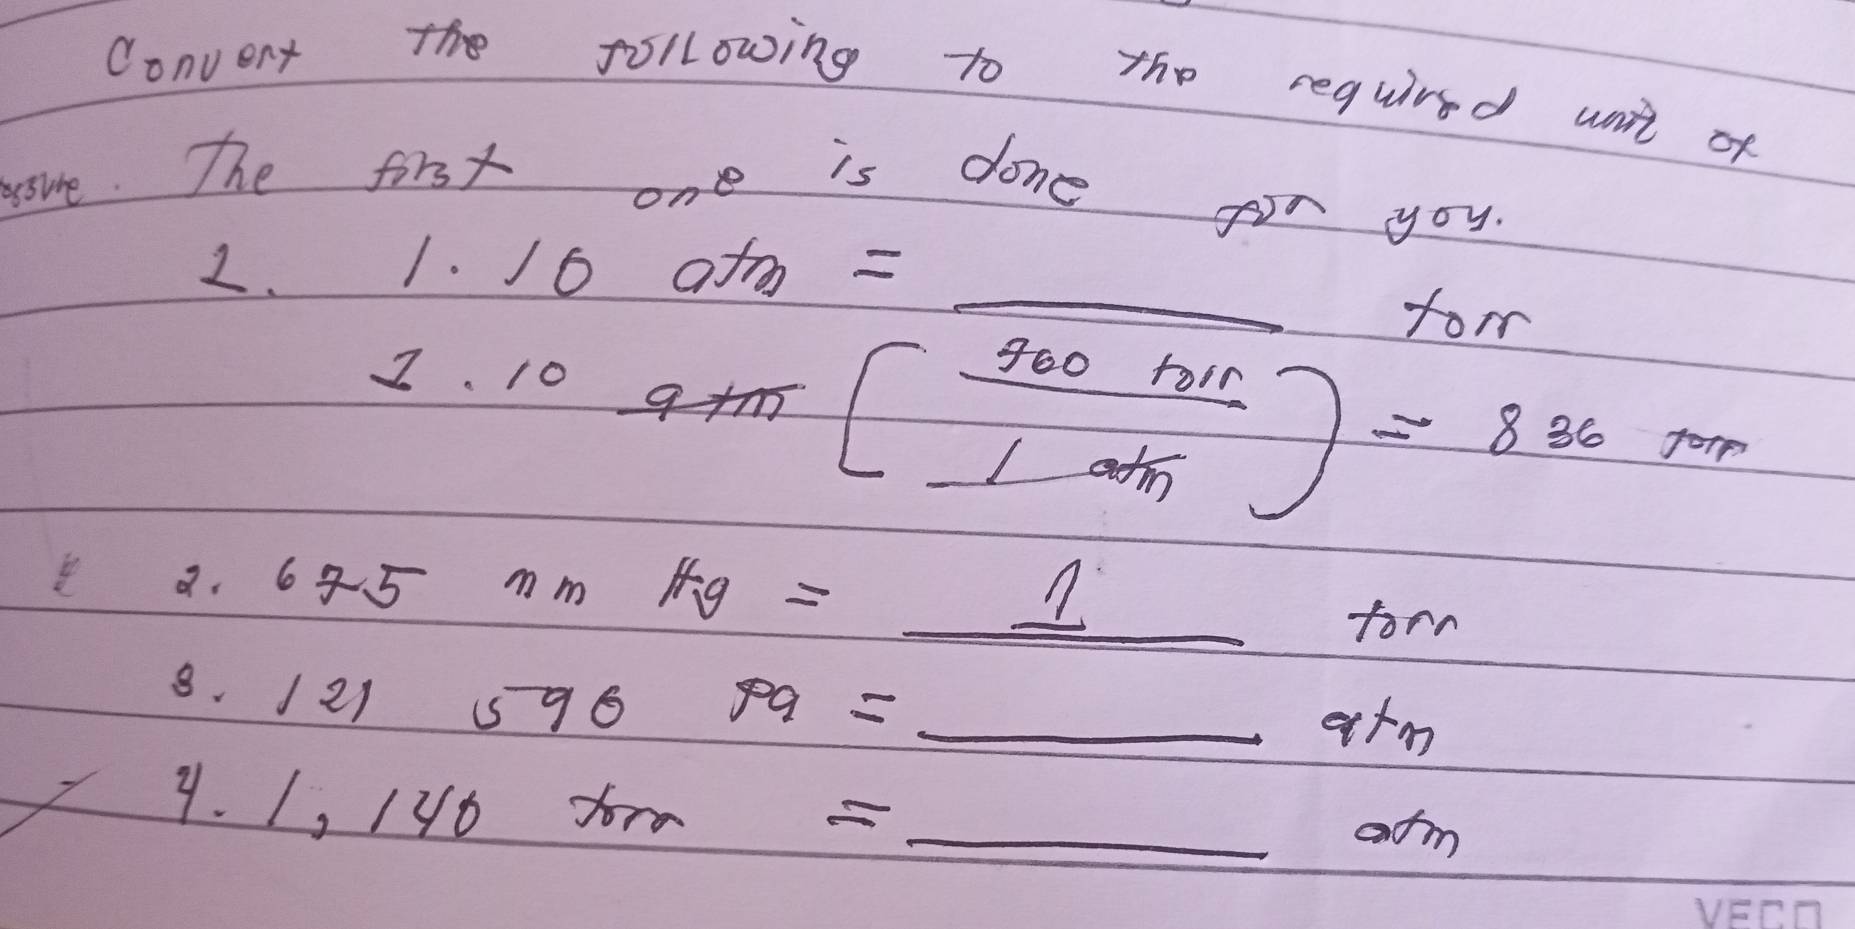 Convert the following to the required unit of
The first one is done for you.
1. 1.10 atm = ______ torr
1.10 atm ( 760 torr / 1 atm ) = 836 torr
2. 675 mm Hg = 1 torr
3. 121 590 Pa = ______ atm
4. 1,140 torr = ______ atm
VECO